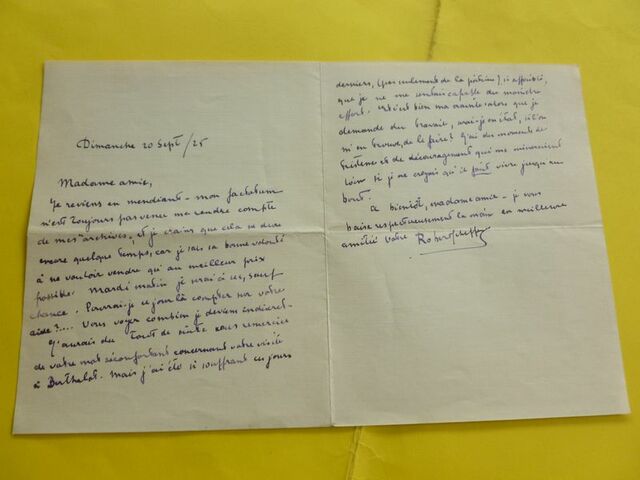 Dimanche 20 Sept/25
Madame amie,
Je reviens en mendiant - mon factotum
n'est toujours pas venu me rendre compte
de mes "archives, et je crains que cela ne dure
encore quelque temps, car je sais sa bonne volonté
à ne vouloir vendre qu'au meilleur prix
possible. Mardi matin je serai à sec, sauf
chance. Pourrai-je ce jour là compter sur votre
aide?.... Vous voyez combien je deviens indiscret -
J'aurais dû tout de suite vous remercier
de votre mot réconfortant concernant votre visite
à Berthelot. Mais j'ai été si souffrant ces jours
derniers, (pas seulement de la poitrine) si affaibli,
que je ne me sentais capable du moindre
effort. Et c'est bien ma crainte : alors que je
demande du travail, serai-je en état, si l'on
m'en trouve, de le faire? J'ai des moments de
tristesse et de découragement qui me mèneraient
loin si je ne croyais qu'il faut vivre jusqu'au
bout.
A bientôt, madame amie - je vous
baise respectueusement la main en meilleure
amitié votre Robert Scheffer